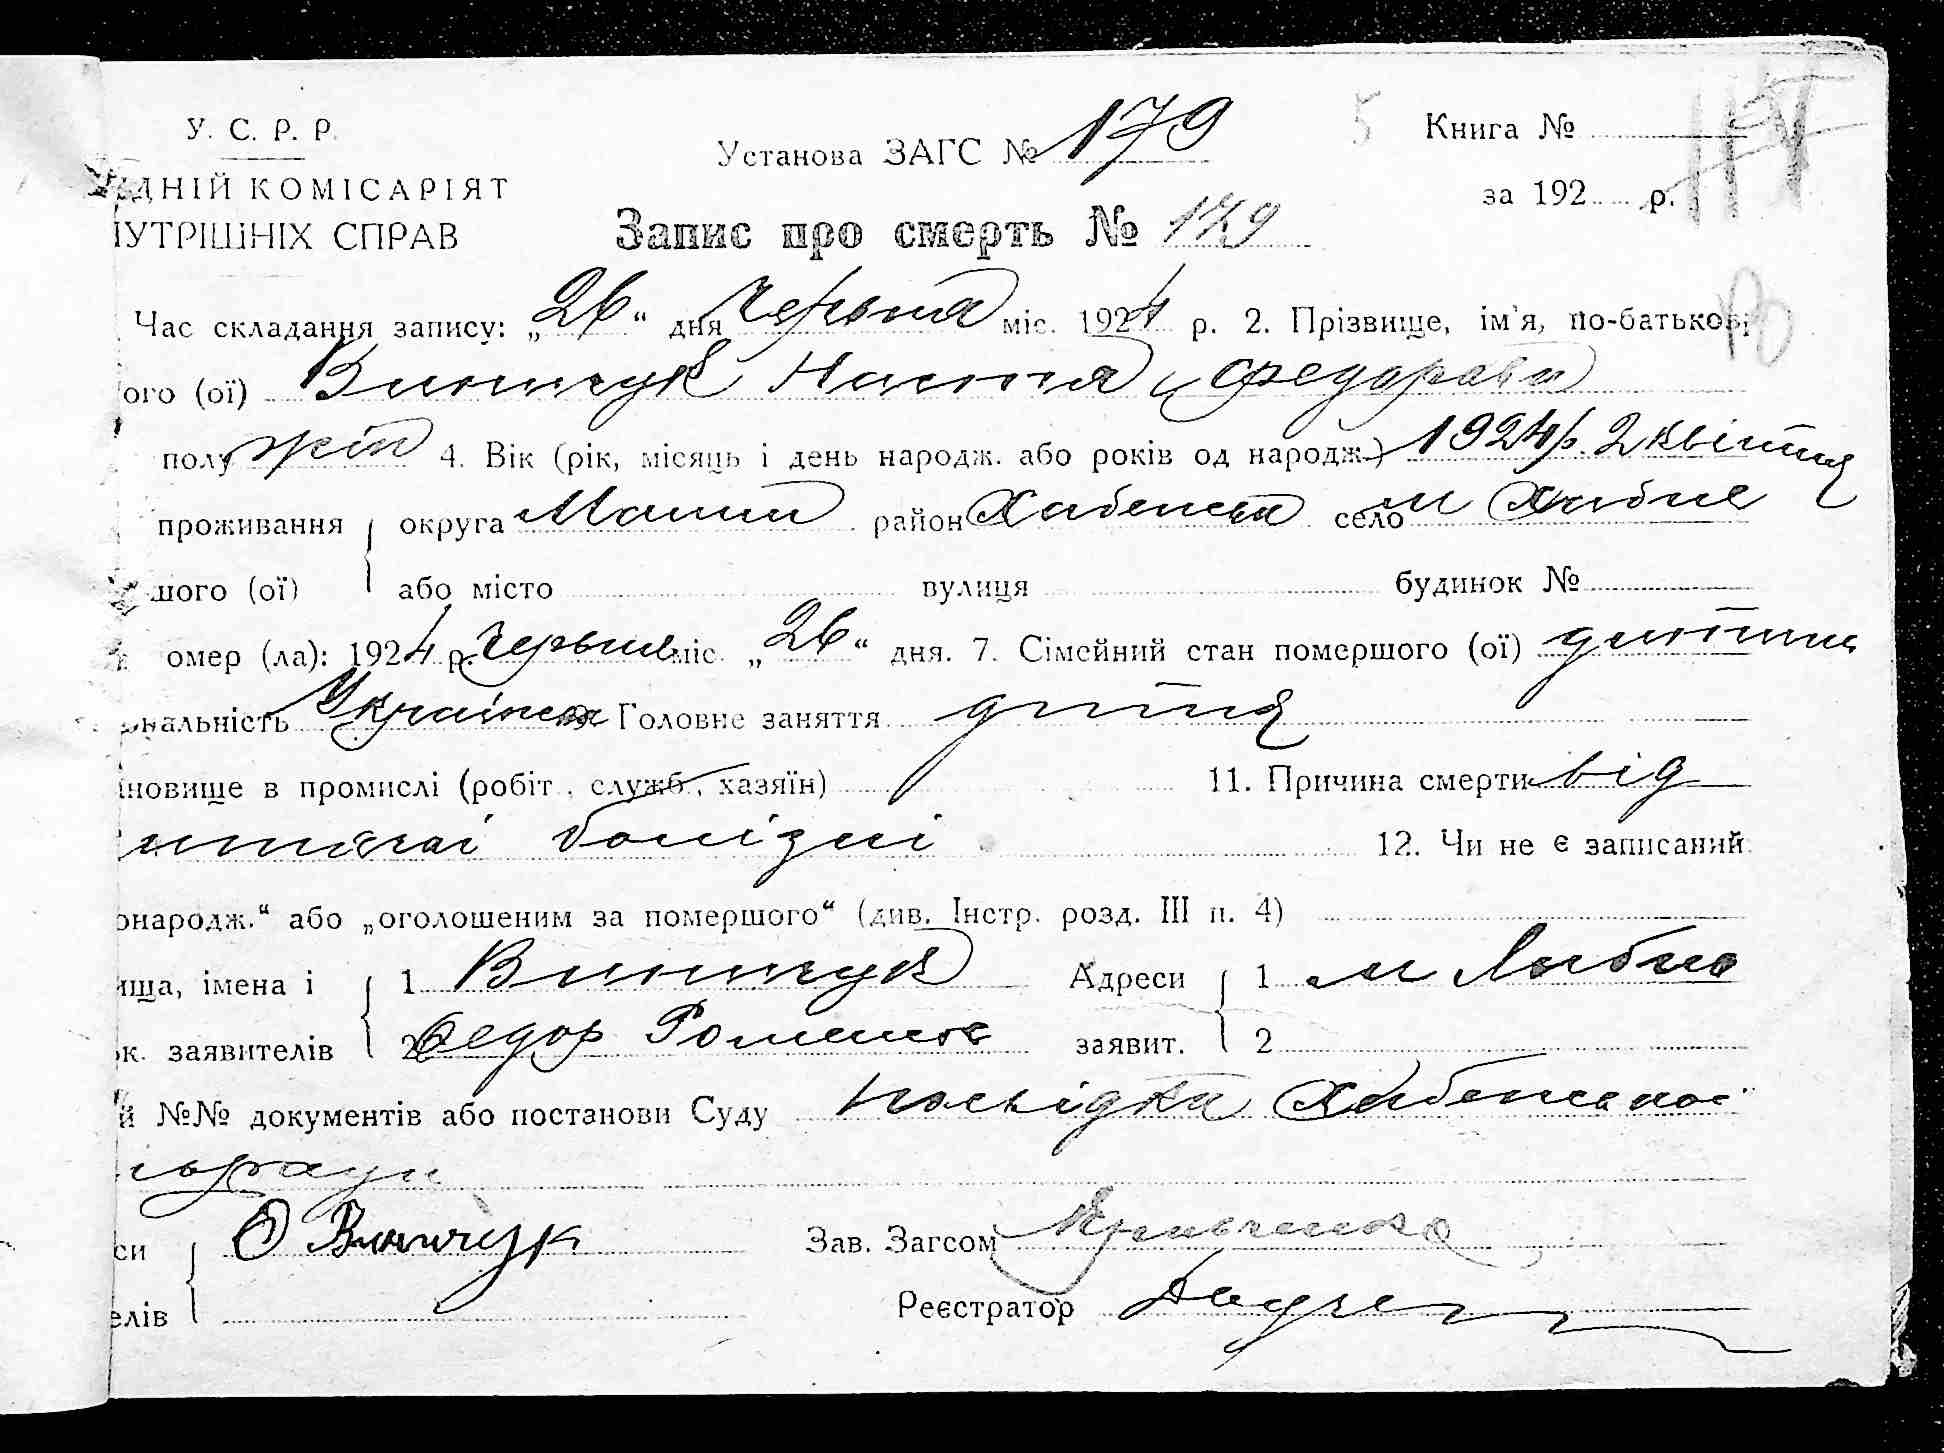 У. С. Р. Р.
ДНІЙ КОМІСАРІЯТ
НУТРІШНІХ СПРАВ
Установа ЗАГС № 179
5
Книга №
за 192 р.
Запис про смерть № 179
Час складання запису: „26“ дня Червня міс. 1924 р. 2. Прізвище, ім'я, по-батькові
ого (ої) Винничук Настя Федорівн
полу жін 4. Вік (рік, місяць і день народж. або років од народж.) 1924 р. 2 квітня
проживання округа Малин район Хабенськ село м Хабне
шого (ої) або місто вулиця будинок №
омер (ла): 1924 р. Червня міс. „26“ дня. 7. Сімейний стан помершого (ої) дитина
ональність Українка Головне заняття дитя
ановище в промислі (робіт., служб., хазяїн) 11. Причина смерти від
дитячої болізні 12. Чи не є записаний
онародж.“ або „оголошеним за помершого“ (див. Інстр. розд. III п. 4)
ища, імена і 1 Винничук Адреси 1 м Хабно
ьк. заявителів 2 Федор Романов заявит. 2
й №№ документів або постанови Суду посвідка Хабенської
льради
си О Винничук Зав. Загсом
елів Реєстратор